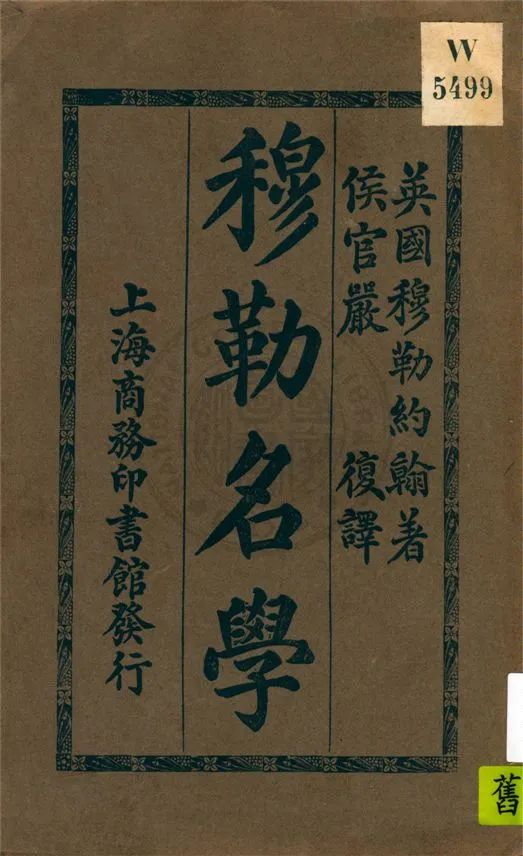 W
5499
英國穆勒約翰著
侯官嚴 復譯
穆勒名學
上海商務印書館發行
舊